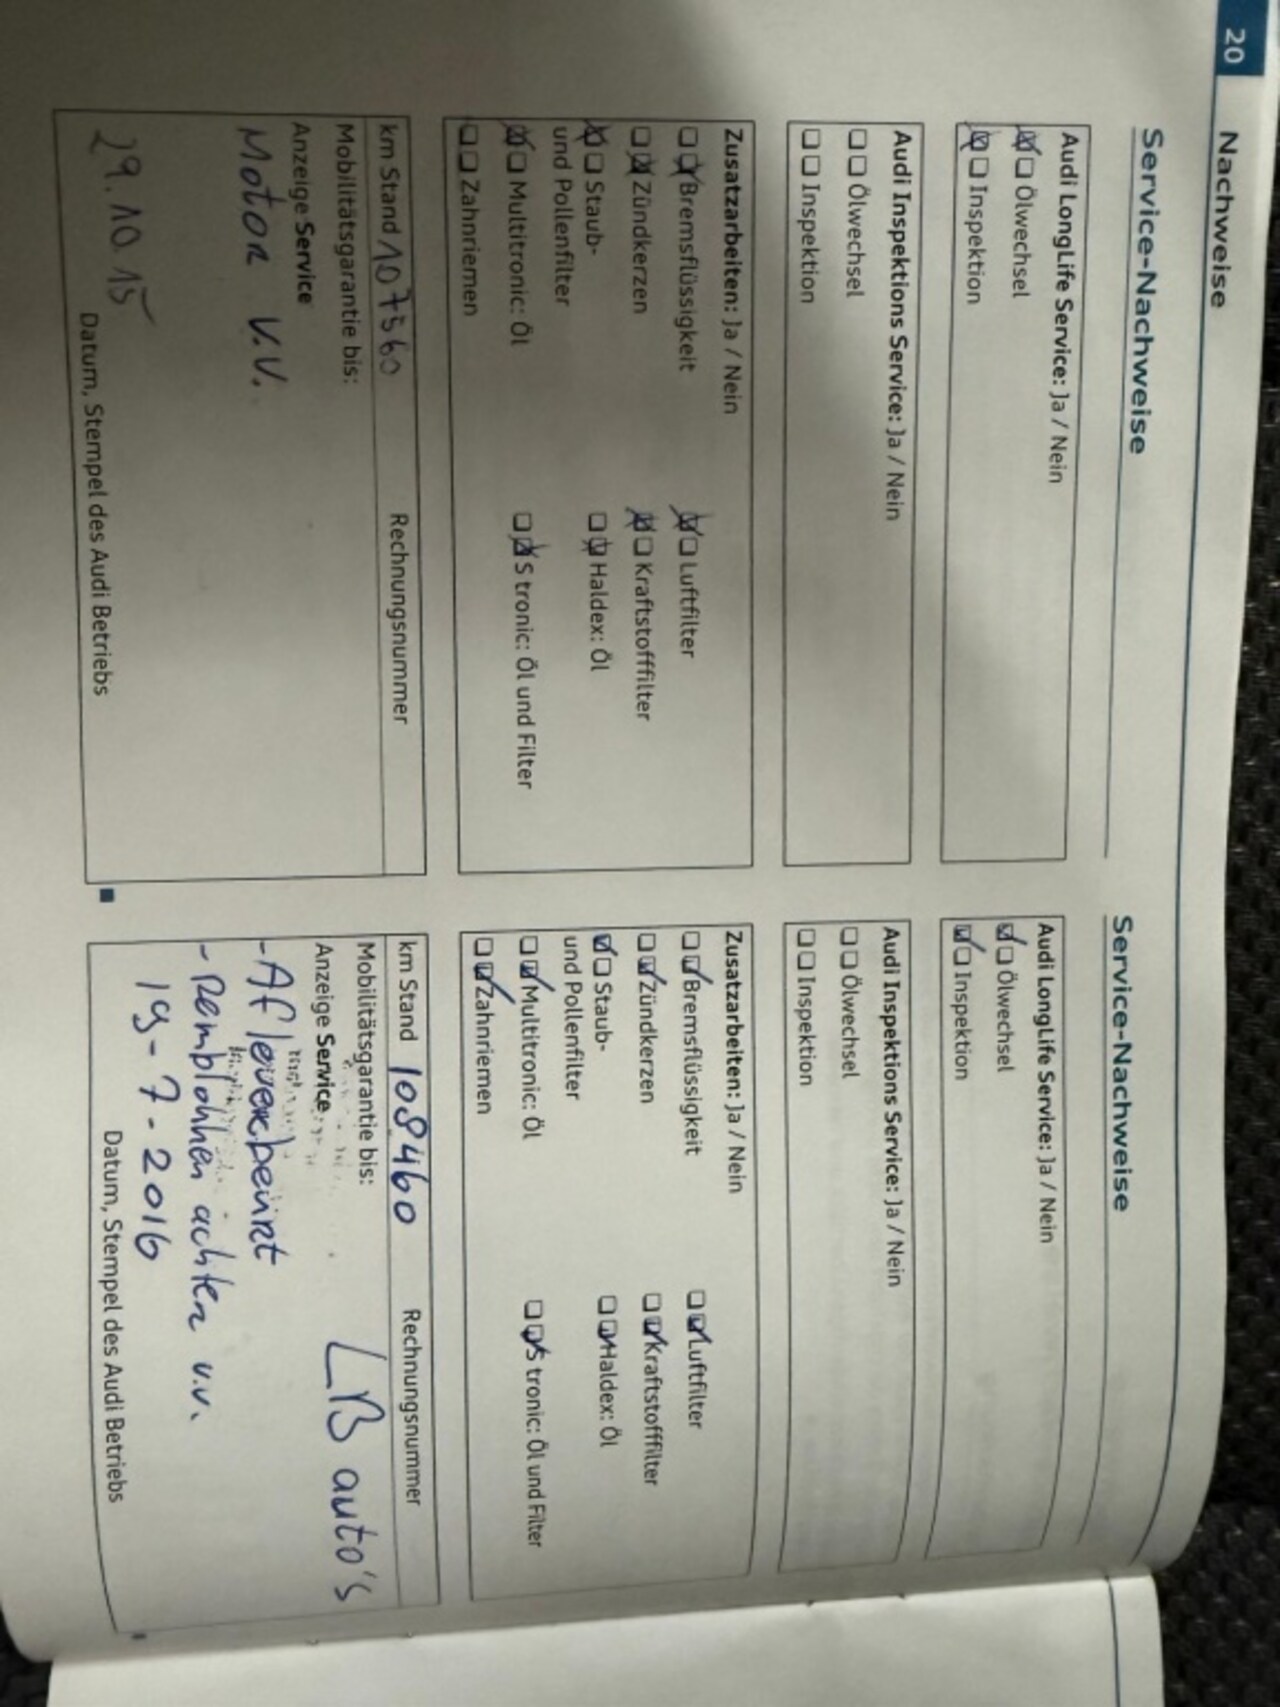 20 Nachweise
Service-Nachweise
Audi LongLife Service: Ja / Nein
Ölwechsel
Inspektion
Audi Inspektions Service: Ja / Nein
Ölwechsel
Inspektion
Zusatzarbeiten: Ja / Nein
Bremsflüssigkeit Luftfilter
Zündkerzen Kraftstofffilter
Staub- Haldex: Öl
und Pollenfilter
Multitronic: Öl S tronic: Öl und Filter
Zahnriemen
km Stand 107560 Rechnungsnummer
Mobilitätsgarantie bis:
Anzeige Service
Motor V.V.
29.10.15
Datum, Stempel des Audi Betriebs
Service-Nachweise
Audi LongLife Service: Ja / Nein
Ölwechsel
Inspektion
Audi Inspektions Service: Ja / Nein
Ölwechsel
Inspektion
Zusatzarbeiten: Ja / Nein
Bremsflüssigkeit Luftfilter
Zündkerzen Kraftstofffilter
Staub- Haldex: Öl
und Pollenfilter
Multitronic: Öl S tronic: Öl und Filter
Zahnriemen
km Stand 108460 Rechnungsnummer
Mobilitätsgarantie bis:
LB auto's
Anzeige Service
- Afleverbeurt
- Remblokken achter v.v.
19-7-2016
Datum, Stempel des Audi Betriebs